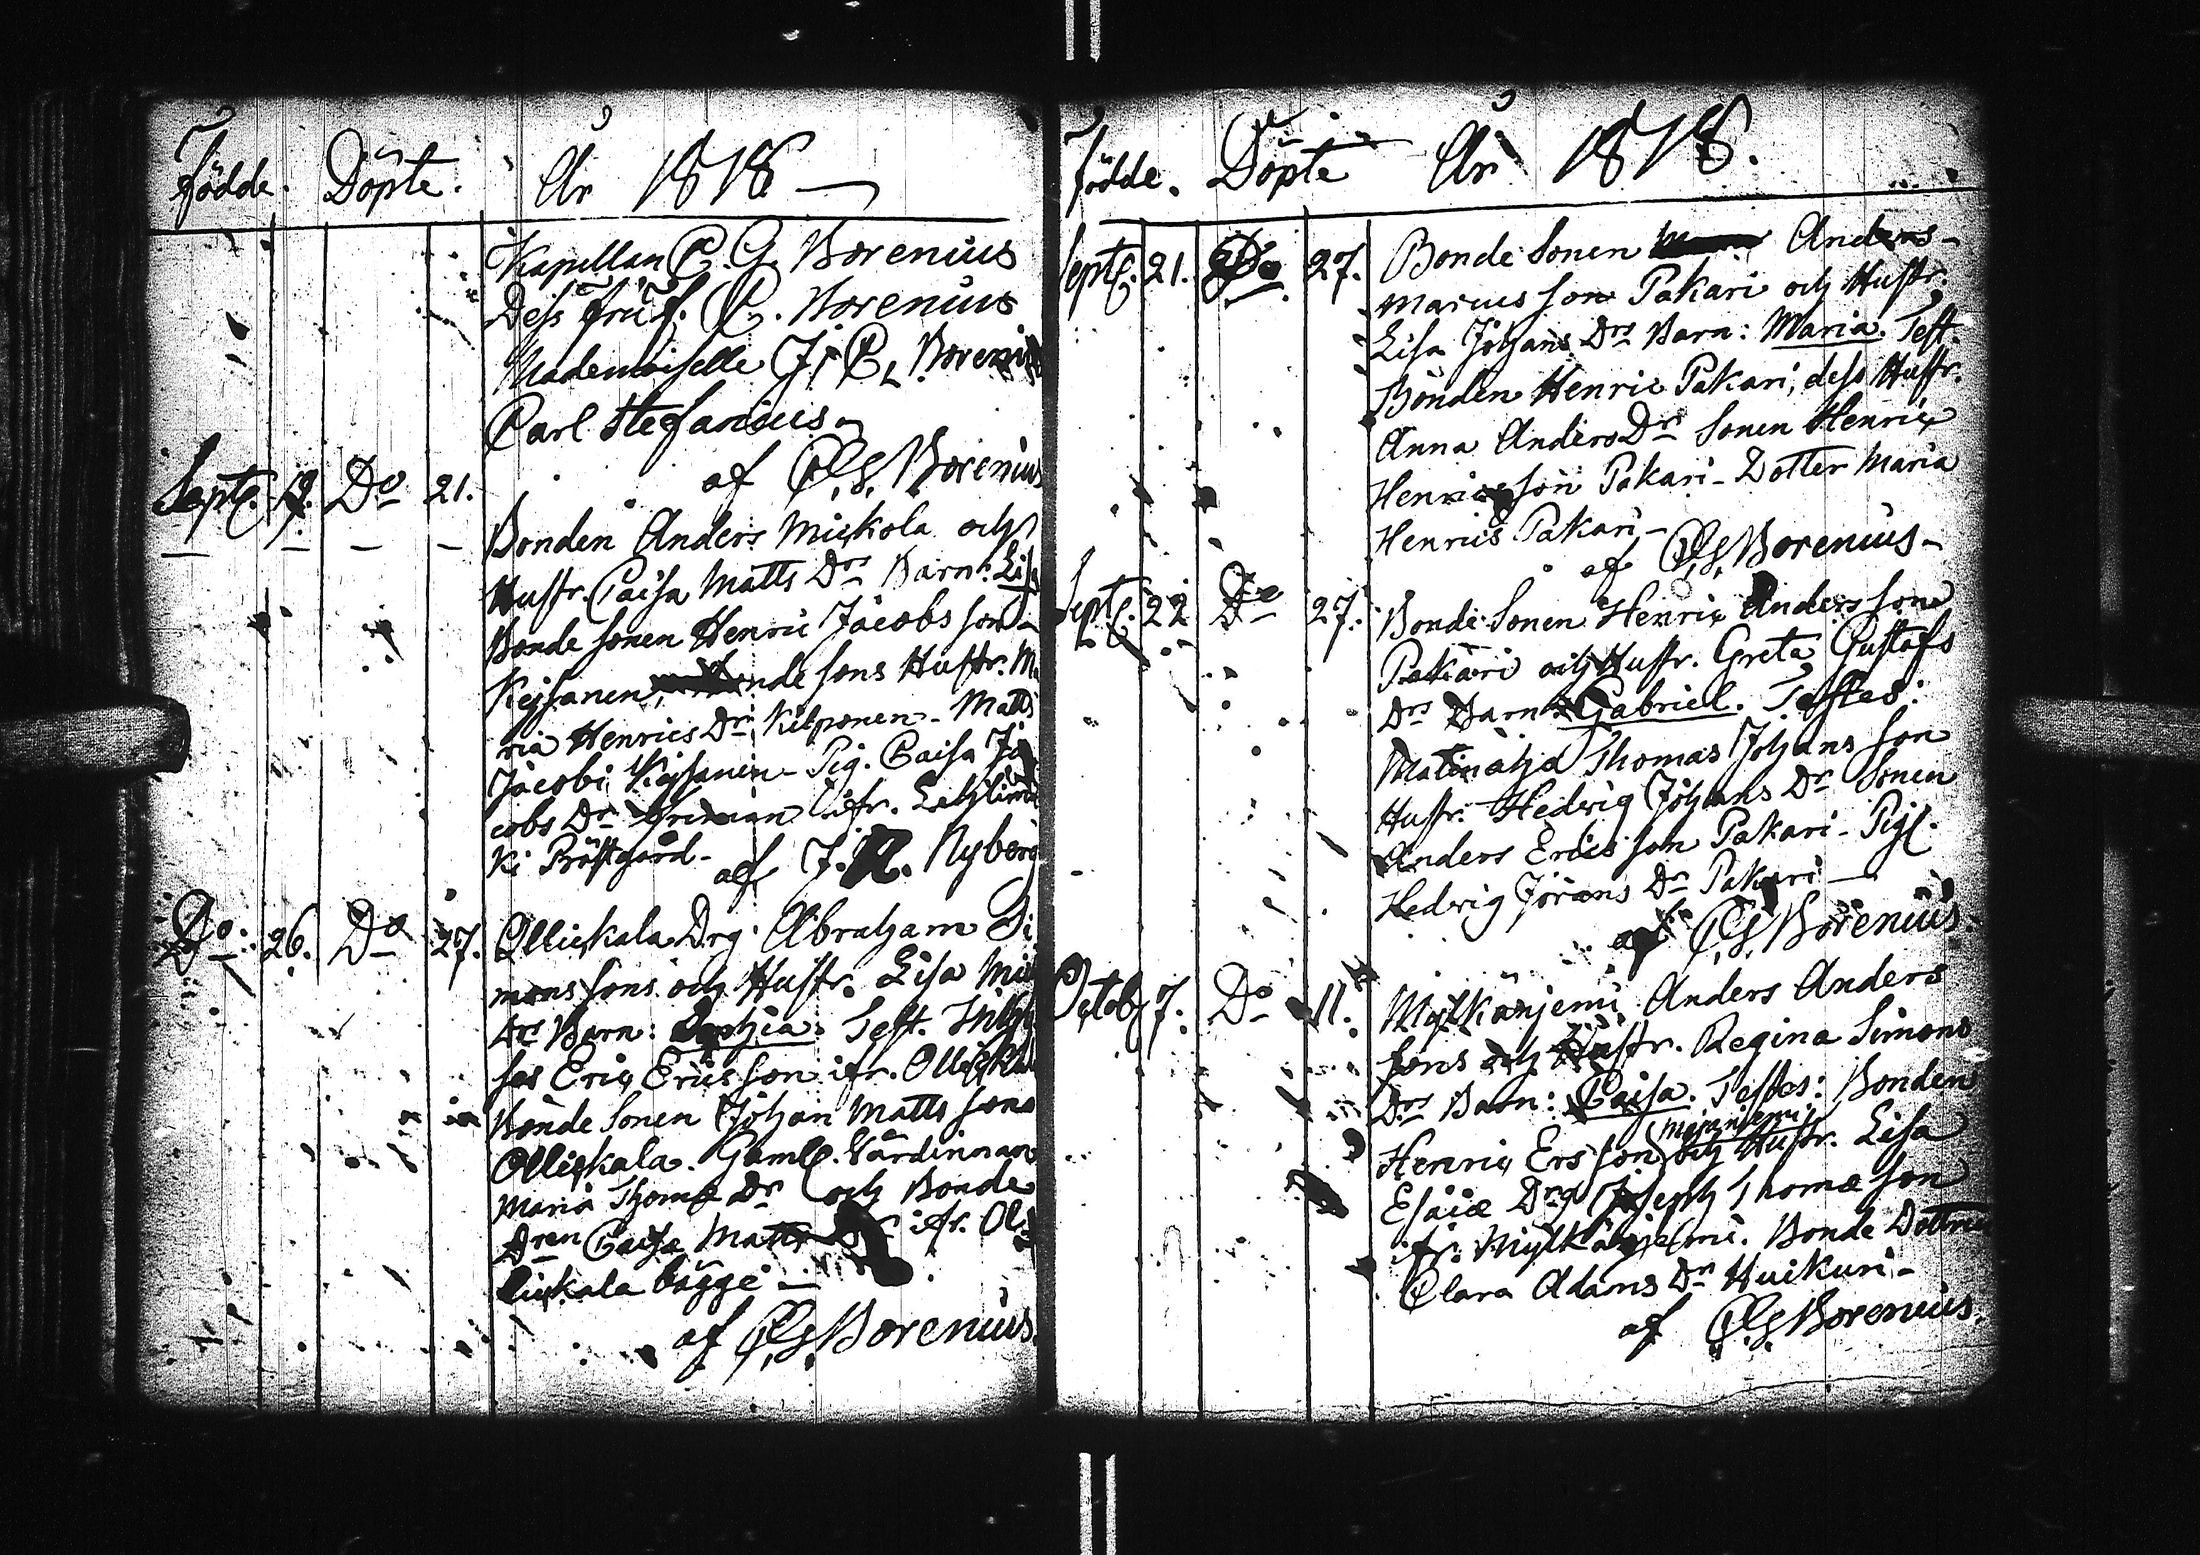 Födde. Döpte. År 1818
Kapellan C. G. Borenius
Dess Fru f. C. Borenius
Mademoiselle J. C. Boreni
Carl Stefanius
af C. G. Borenius
Septb. 19. Do 21.
Bonden Anders Mickola och
Hustr. Caisa Matts Drs Barn: Lisa
Bonde sonen Henric Jacobs son
Keyhanen, nde sons Hustr. Ma
ria Henrics Dr Kilponen - Matts
Jacobi Keyhanen - Pig. Caisa Ja
cobs Dr ifr. Lehlim
ki Pröstgård -
af J. R. Nyberg
Do. 26. Do 27.
Ollickala Drg. Abraham Si
mons sons och Hustr. Lisa
Drs Barn: Sophia. Test. Inhy
ses Eric Erics son ifr. Ollickala
Bonde Sonen Johan Matts sons
Ollickala. Gaml. Värdinnan
Maria Thomæ Dr och Bonde
Dren Caisa Matts ifr. Ol
lickala bägge
af C. G. Borenius.
Födde. Döpte År 1818.
Septb. 21. Do 27.
Bonde Sonen Anders
Marcus son Pakari och Hustr.
Lisa Johans Drs Barn: Maria. Test.
Bonden Henric Pakari, dess Hustr.
Anna Anders Dr Sonen Henric
Henrics son Pakari - Dotter Maria
Henrics Pakari -
af C. G. Borenius -
Septb. 22 Do 27.
Bonde Sonen Henric Anders son
Pakari och Hustr. Greta Gustafs
Drs Barn: Gabriel. Testes:
Thomas Johans son
Hustr. Hedvig Johans Dr Sonen
Anders Erics son Pakari - Pig.
Hedvig Jörans Dr Pakari
af C. G. Borenius.
Octob. 7. Do 11.
Myllkänjemi Anders Anders
sons och Hustr. Regina Simons
Drs Barn: Caisa. Testes: Bonden
Henric Ers son och Hustr. Lisa
Esaiæ Dr och Joseph Thomæ son
ifr. Myllkänjemi. Bonde Dottren
Clara Adams Dr Huikuri -
af C. G. Borenius.